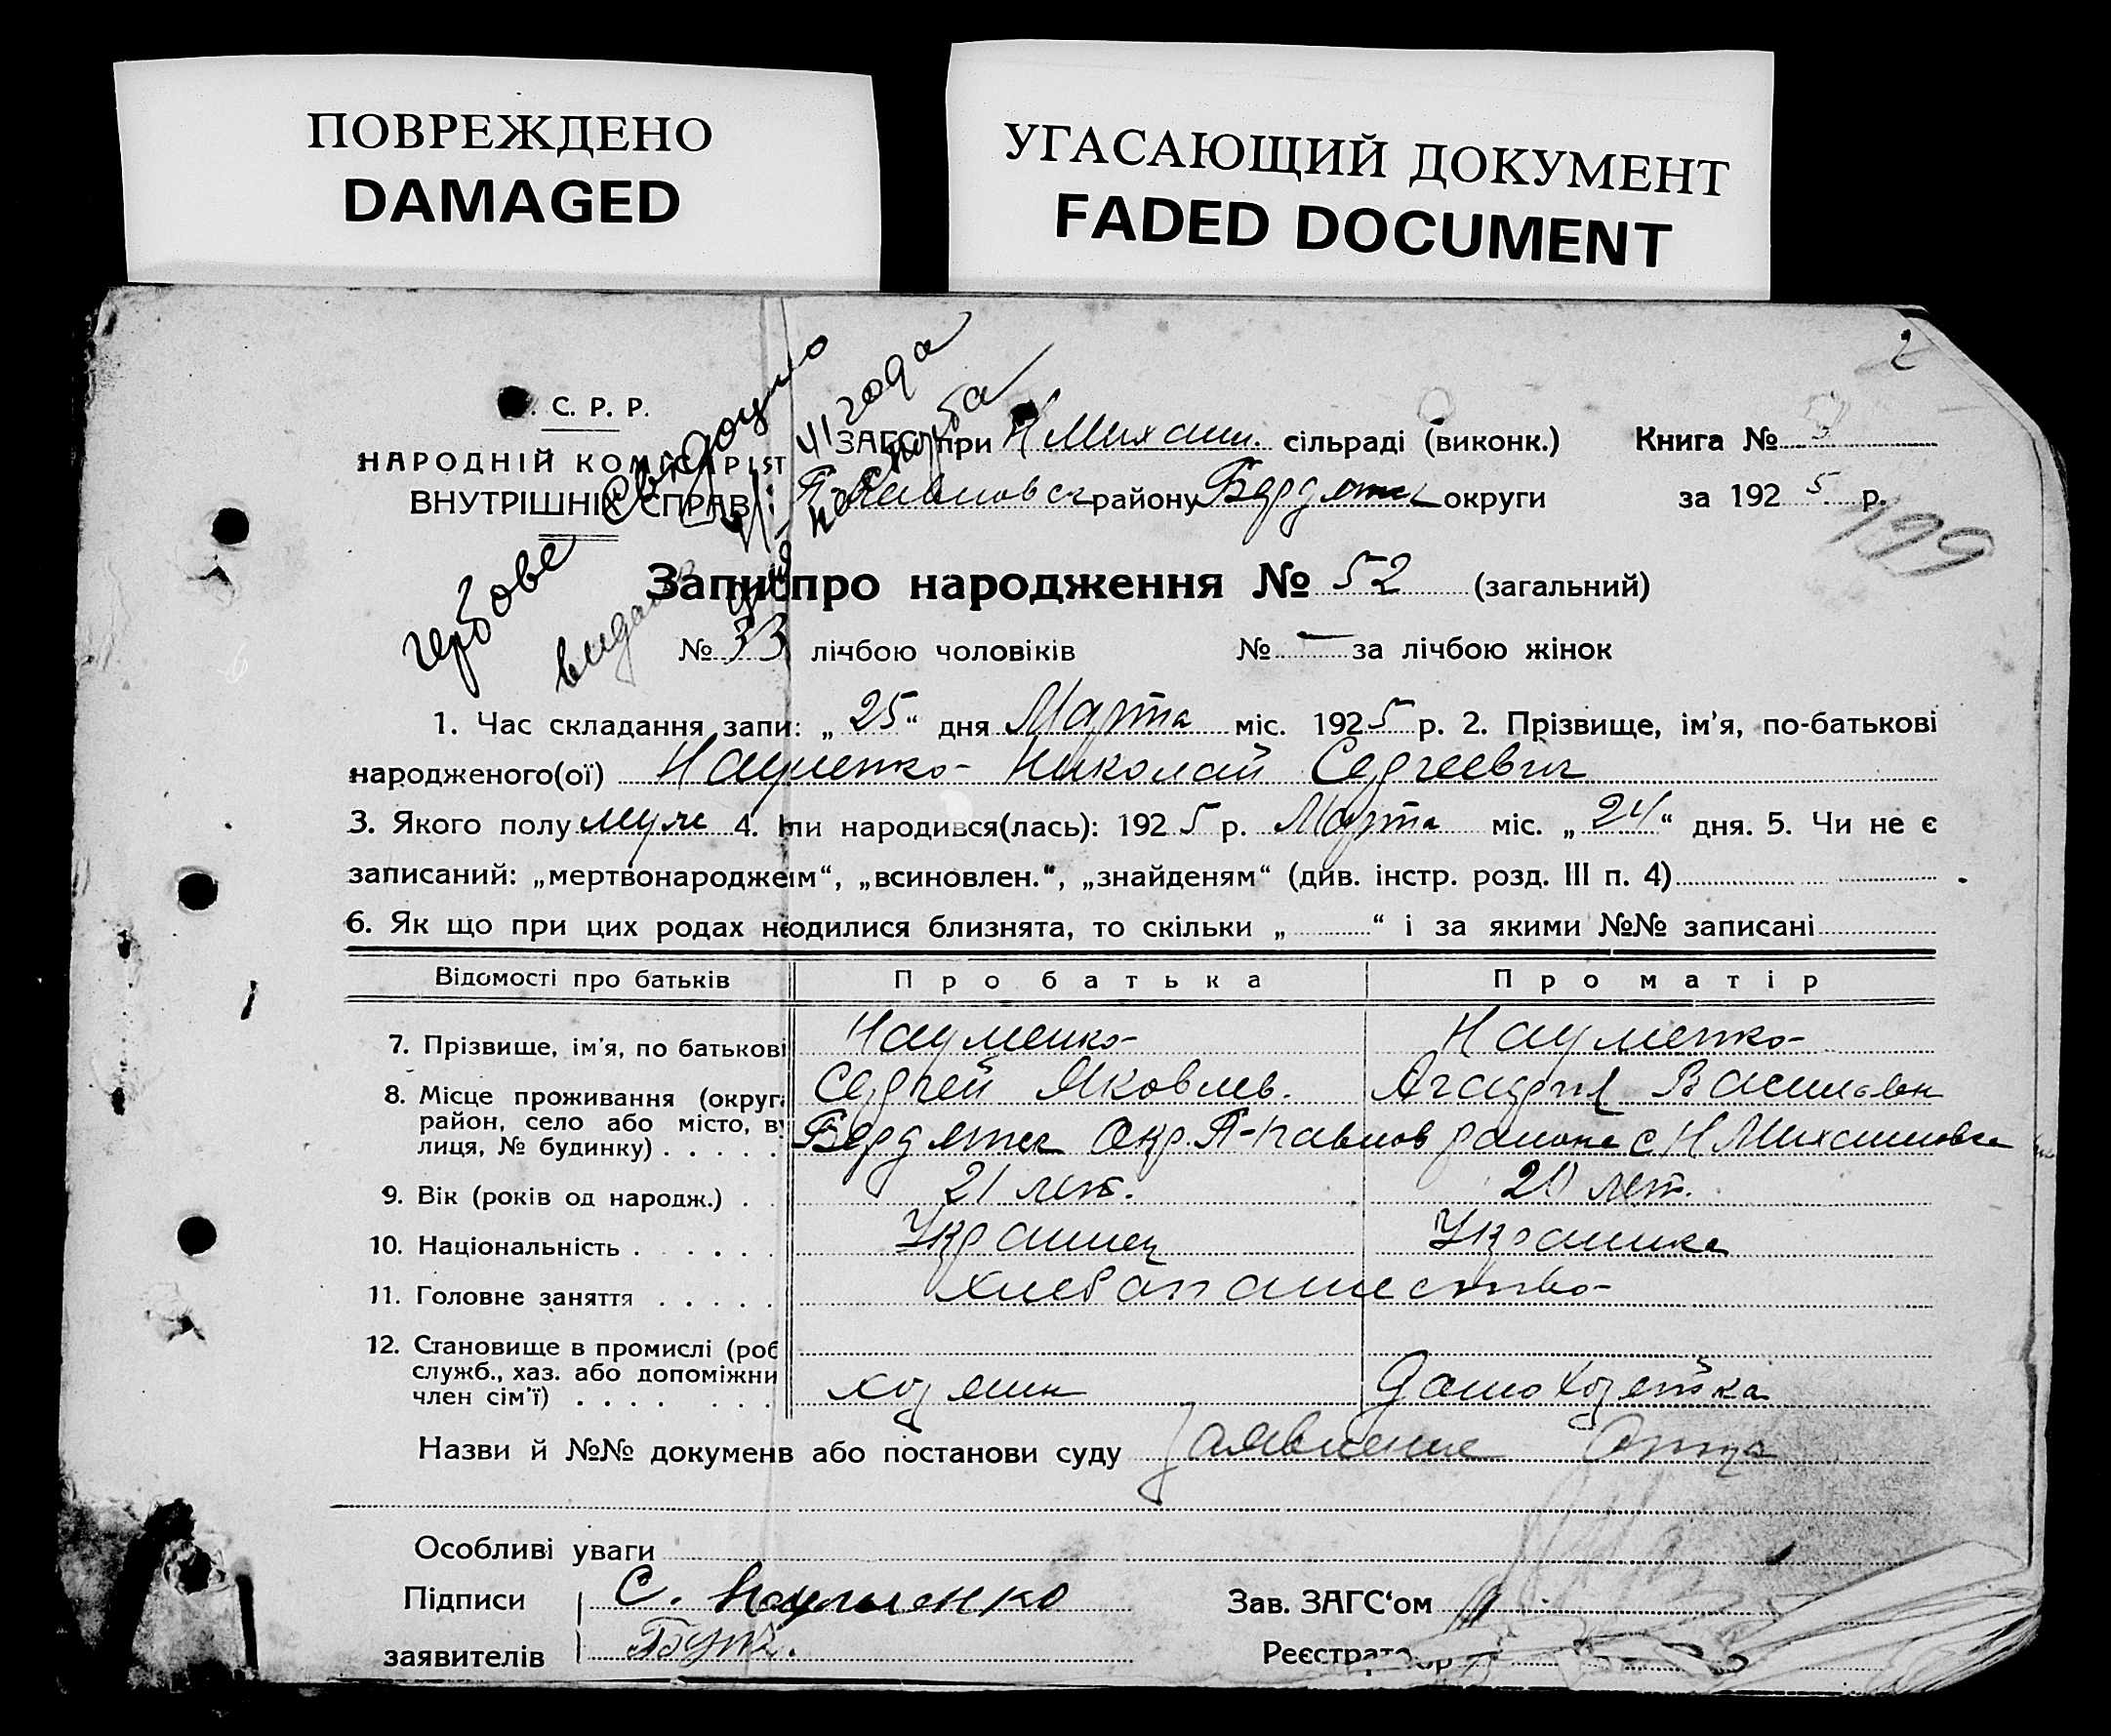 ПОВРЕЖДЕНО
DAMAGED
УГАСАЮЩИЙ ДОКУМЕНТ
FADED DOCUMENT
2
. С. Р. Р.
НАРОДНІЙ КОМІСАРІЯТ
ВНУТРІШНІХ СПРАВ
гербове свидоцтво
видано
41 года
ЗАГС при Н Михайл. сільраді (виконк.) Книга №
П-Павловск району Бердянск округи за 1925 р.
199
Запис про народження № 52 (загальний)
№ 33 лічбою чоловіків № — за лічбою жінок
1. Час складання запи: „ 25 “ дня Марта міс. 1925 р. 2. Прізвище, ім'я, по-батькові
народженого(ої) Науменко Николай Сергеевич
3. Якого полу муж 4. ли народився(лась): 1925 р. Марта міс. „ 24 “ дня. 5. Чи не є
записаний: „мертвонароджеім“, „всиновлен.", „знайденям“ (див. інстр. розд. III п. 4)
6. Як що при цих родах н одилися близнята, то скільки „ “ і за якими №№ записані
Відомості про батьків Про батька Про матір
7. Прізвище, ім'я, по батькові Науменко Науменко
Сергей Яковлев. Агафия Васильевн
8. Місце проживання (округ
район, село або місто, в
лиця, № будинку) . . . . . Бердянск Окр. П-Павлов района с Н Михайловка
9. Вік (років од народж.) . . 21 лет. 20 лет.
10. Національність . . . . . . Украинец Украинка
11. Головне заняття . . . . . хлебапашество
12. Становище в промислі (роб
служб., хаз. або допоміжни
член сім'ї) . . . . . . . хозяин Дамохозяйка
Назви й №№ докумен в або постанови суду Заявление Отца
Особливі уваги
Підписи С. Науменко Зав. ЗАГС‘ом
заявителів Реєстрато